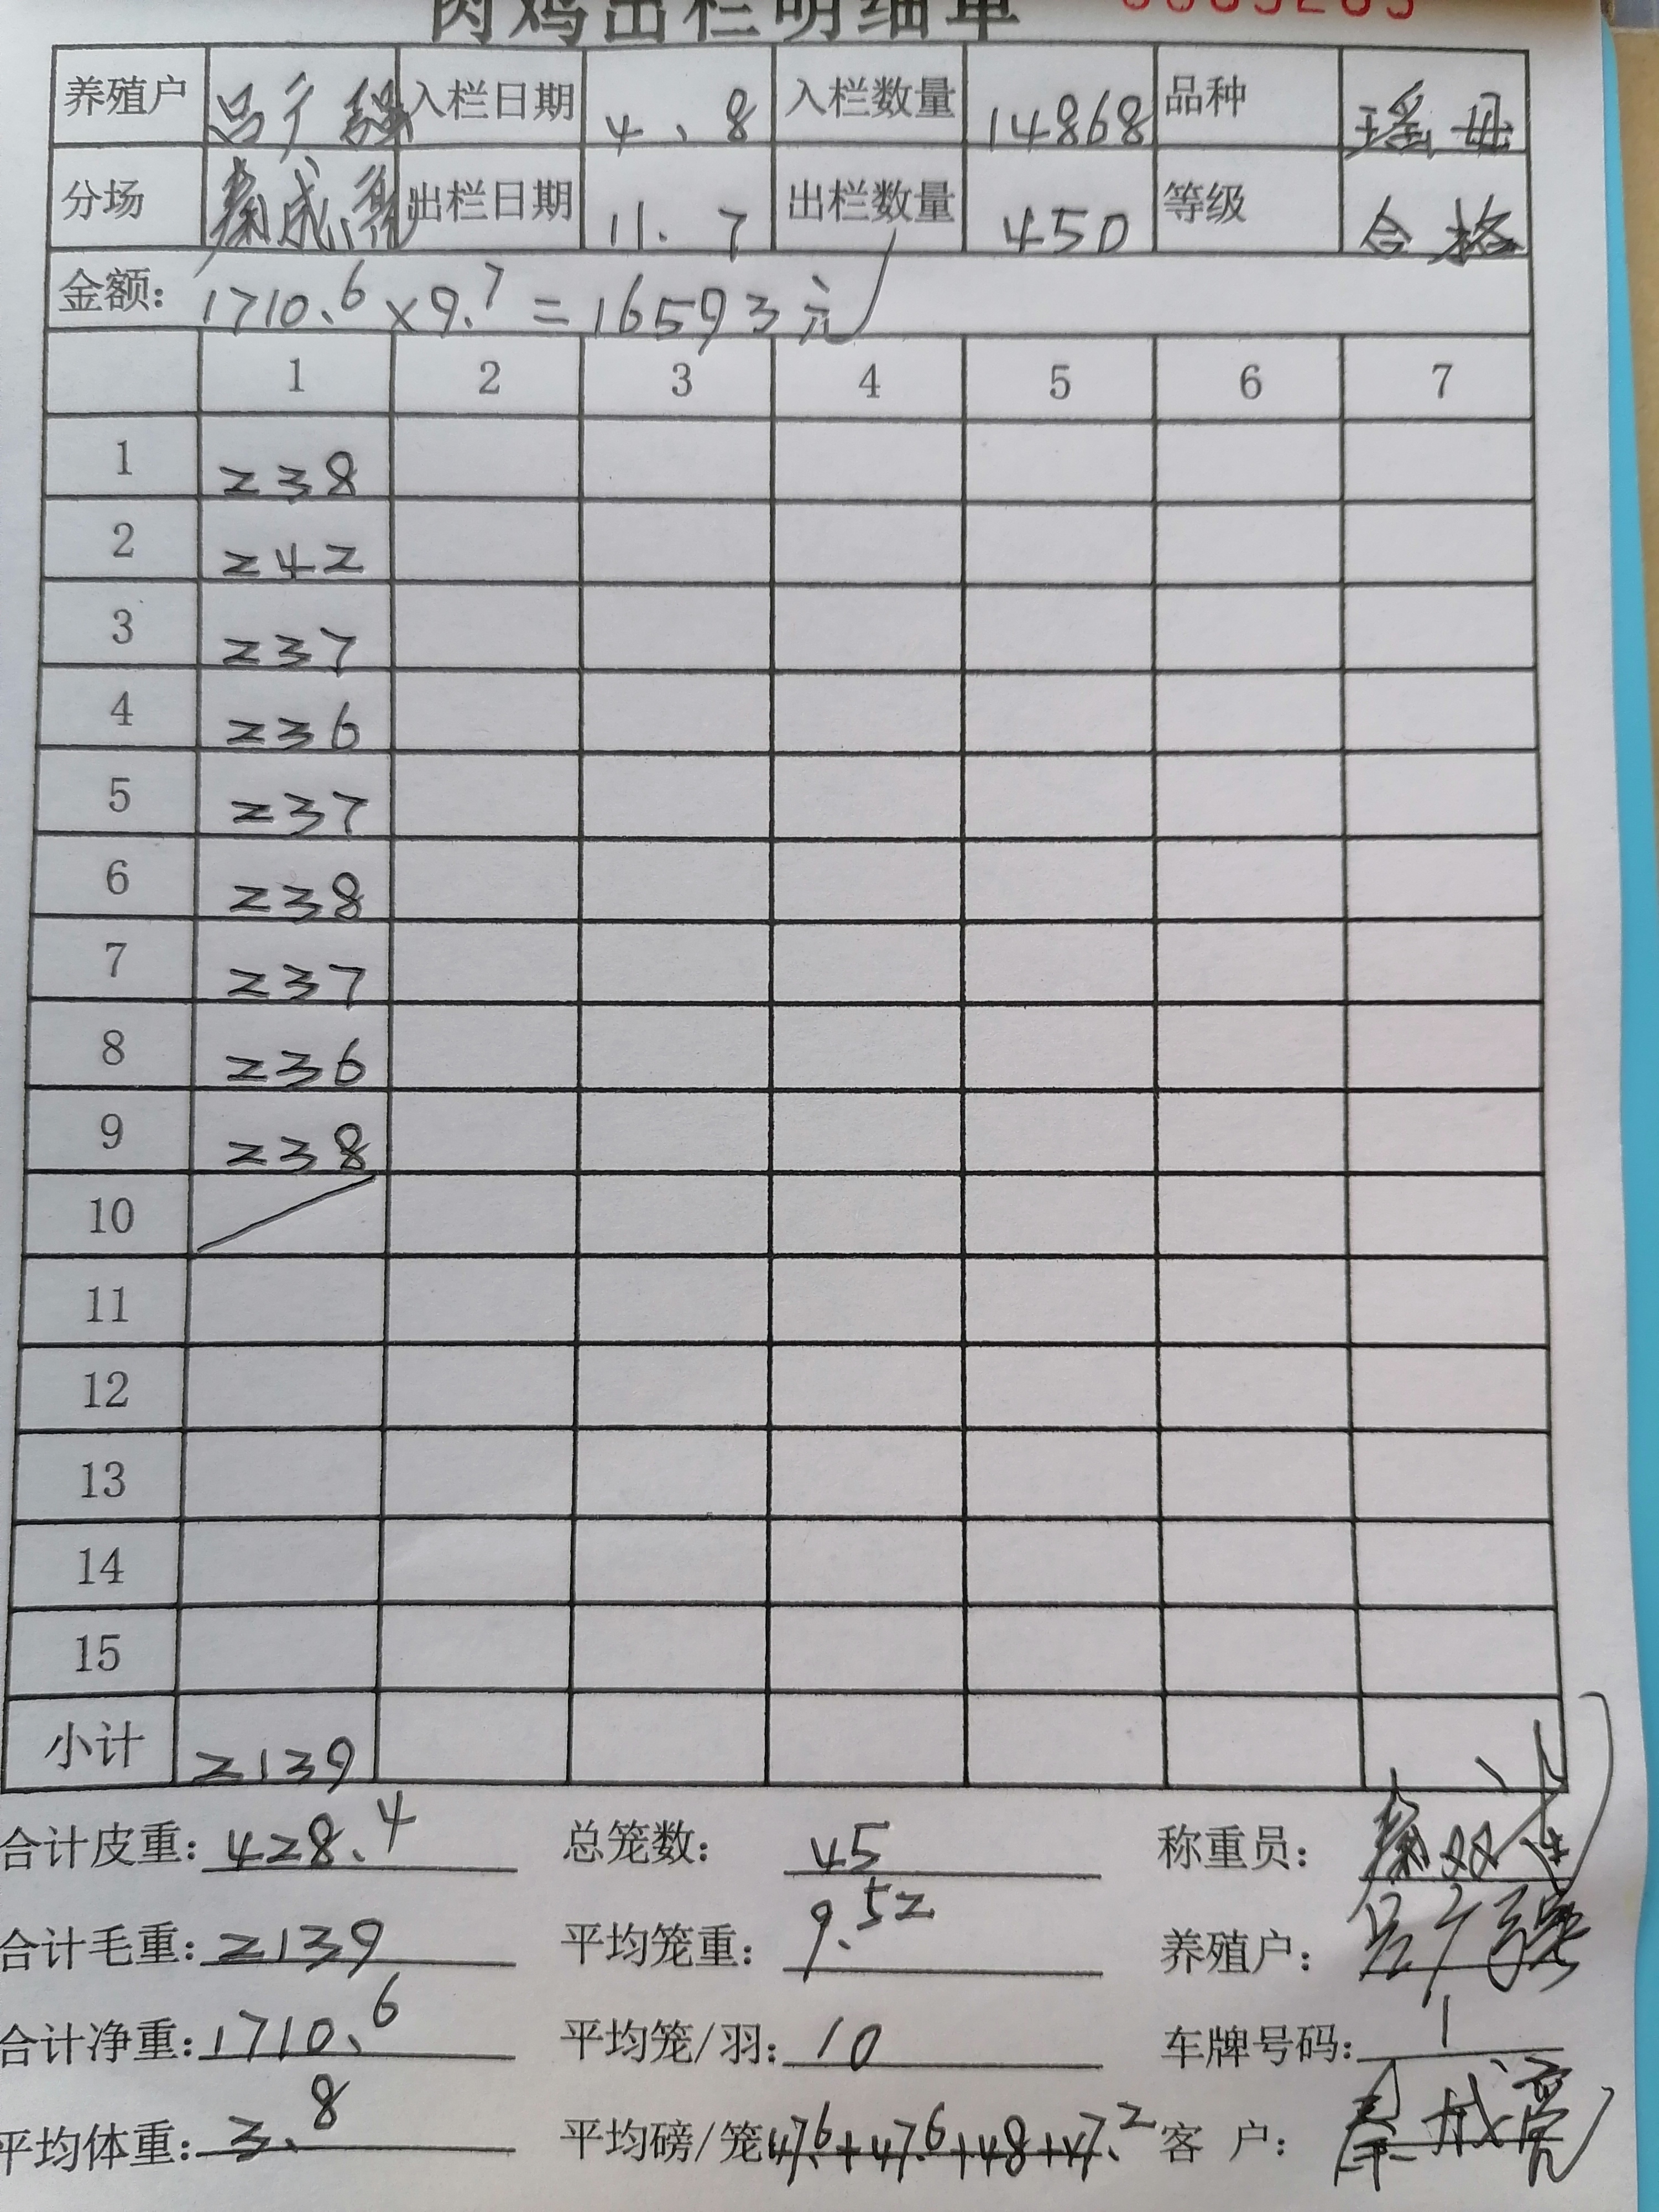 肉鸡出栏明细单
养殖户 吕广强 入栏日期 4.8 入栏数量 14868 品种 瑶母
分场 秦成亮 出栏日期 11.7 出栏数量 450 等级 合格
金额: 1710.6×9.7=16593元
1 2 3 4 5 6 7
1 238
2 242
3 237
4 236
5 237
6 238
7 237
8 236
9 238
10
11
12
13
14
15
小计 2139
合计皮重: 428.4 总笼数: 45 称重员:
合计毛重: 2139 平均笼重: 9.52 养殖户: 吕广强
合计净重: 1710.6 平均笼/羽: 10 车牌号码: 1
平均体重: 3.8 平均磅/笼 47.6+47.6+48+47.2 客 户: 秦成亮